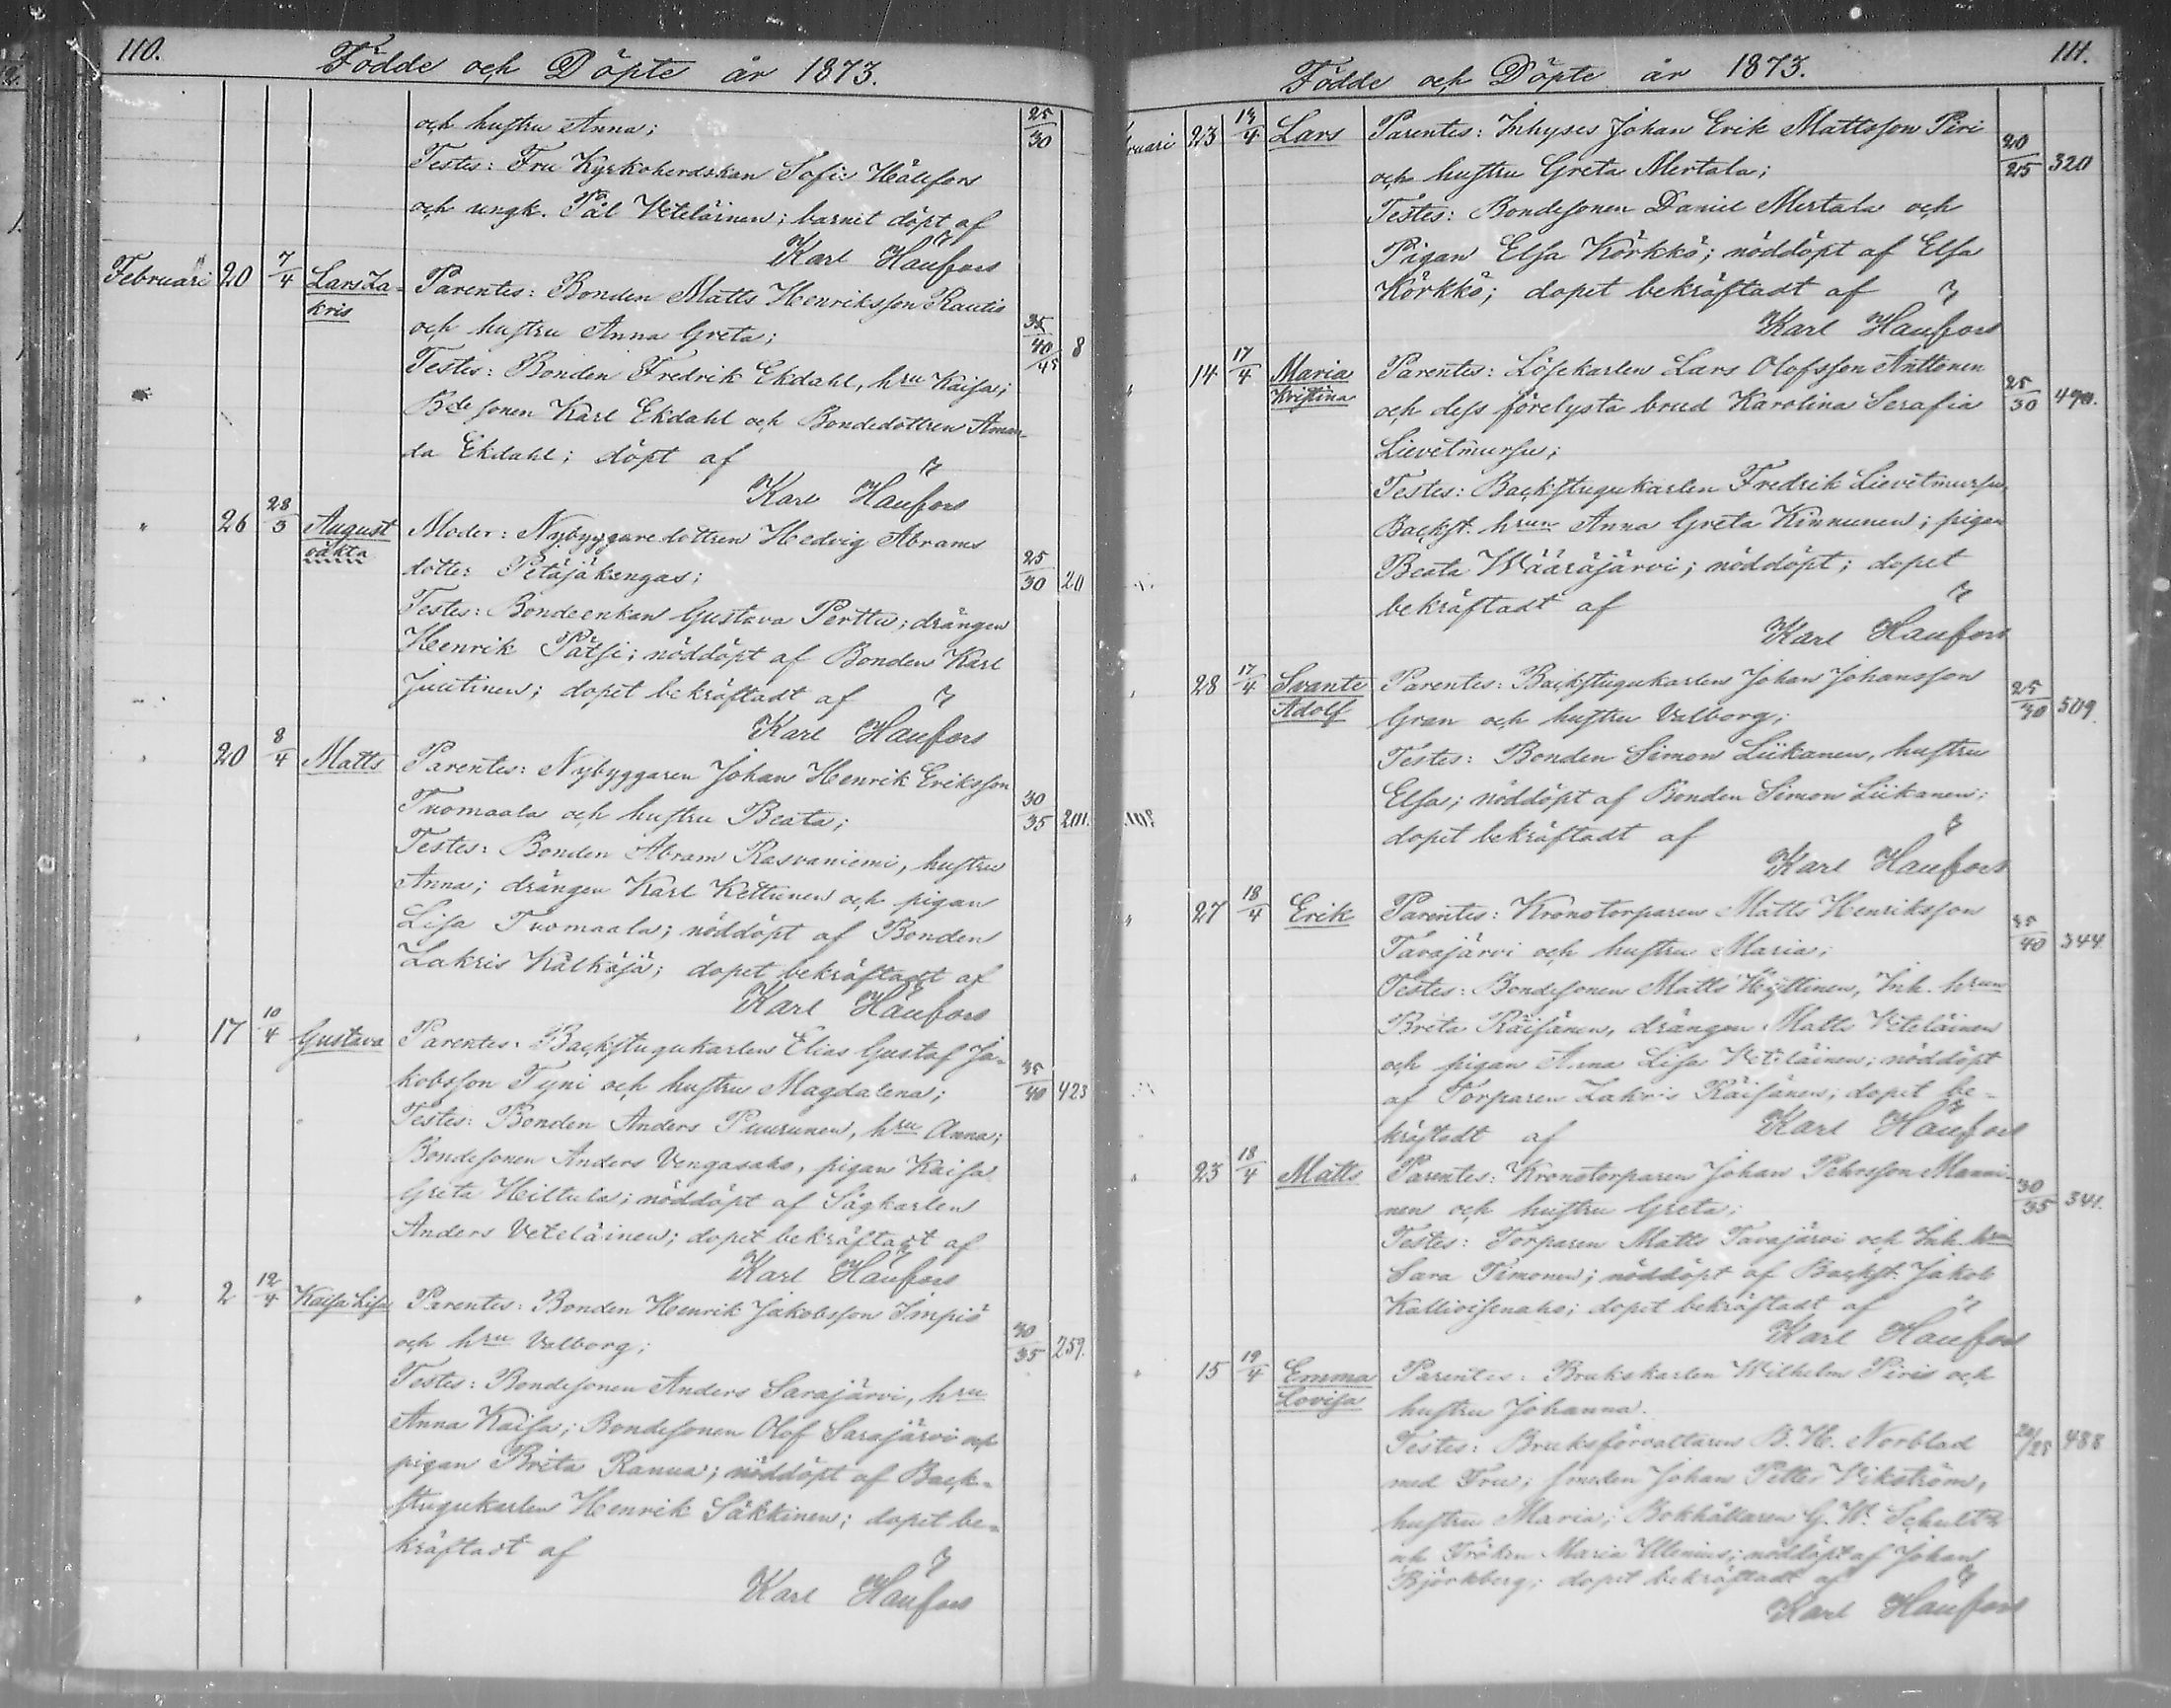 110.
Födde och Döpte år 1873.
och hustru Anna; 25/30
Testes: Fru Kyrkoherdskan Sofie Häufors
och ungk. Pål Veteläinen; barnet döpt af
Karl Häufors
Februari 20 7/4 Lars Za- Parentes: Bonden Matts Henriksson Rautio
kris och hustru Anna Greta; 35/40/45 8
Testes: Bonden Fredrik Ekdahl, hru Kaisa;
Bdesonen Karl Ekdahl och Bondedottren Aman-
da Ekdahl; döpt af
Karl Häufors
" 26 28/3 August Moder: Nybyggaredottren Hedvig Abrams
oäkta dotter Petäjäkangas; 25/30 20
Testes: Bondeenkan Gustava Perttu; drängen
Henrik Pätsi; nöddöpt af Bonden Karl
Juutinen; dopet bekräftadt af
Karl Häufors
" 20 8/4 Matts Parentes: Nybyggaren Johan Henrik Eriksson
Tuomaala och hustru Beata; 30/35 201.
Testes: Bonden Abram Rasvaniemi, hustru
Anna; drängen Karl Kettunen och pigan
Lisa Tuomaala; nöddöpt af Bonden
Zakris Kälkäjä; dopet bekräftadt af
Karl Häufors
" 17 10/4 Gustava Parentes: Backstugukarlen Elias Gustaf Ja-
kobsson Tyni och hustru Magdalena; 35/40 423
Testes: Bonden Anders Puurunen, hru Anna;
Bondesonen Anders Vengasaho, pigan Kaisa
Greta Hiltula; nöddöpt af Sågkarlen
Anders Veteläinen; dopet bekräftadt af
Karl Häufors
" 2 12/4 Kaisa Lisa Parentes: Bonden Henrik Jakobsson Impiö
och hru Valborg; 30/35 259.
Testes: Bondesonen Anders Sarajärvi, hru
Anna Kaisa; Bondesonen Olof Sarajärvi och
pigan Brita Ranua; nöddöpt af Back-
stugukarlen Henrik Säkkinen; dopet be-
kräftadt af
Karl Häufors
111.
Födde och Döpte år 1873.
ruari 23 14/4 Lars Parentes: Inhyses Johan Erik Mattsson Piri
och hustru Greta Mertala; 20/25 320
Testes: Bondesonen Daniel Mertala och
Pigan Elsa Körkkö; nöddöpt af Elsa
Körkkö; dopet bekräftadt af
Karl Häufors
" 14 17/4 Maria Parentes: Löskarlen Lars Olofsson Anttonen
Kristina och dess förelysta brud Karolina Serafia 25/30 490.
Lievetmursu;
Testes: Backstugukarlen Fredrik Lievetmursu,
Backst. hrun Anna Greta Kinnunen; pigan
Beata Wääräjärvi; nöddöpt; dopet
bekräftadt af
Karl Häufors
" 28 17/4 Svante Parentes: Backstugukarlen Johan Johansson
Adolf Gran och hustru Valborg; 25/30 509.
Testes: Bonden Simon Liikanen, hustru
Elsa; nöddöpt af Bonden Simon Liikanen;
dopet bekräftadt af
Karl Häufors
" 27 18/4 Erik Parentes: Kronotorparen Matts Henriksson
Tavajärvi och hustru Maria; 35/40 344.
Testes: Bondesonen Matts Hyttinen, Inh. hrun
Brita Räisänen, drängen Matts Veteläinen
och pigan Anna Lisa Veteläinen; nöddöpt
af Torparen Zakris Räisänen; dopet be-
kräftadt af Karl Häufors
" 23 18/4 Matts Parentes: Kronotorparen Johan Pehrsson Manni-
nen och hustru Greta; 30/35 341.
Testes: Torparen Matts Tavajärvi och Inh. hrun
Sara Timonen; nöddöpt af Backst. Jakob
Kallioisenaho; dopet bekräftadt af
Karl Häufors
" 15 19/4 Emma Parentes: Brukskarlen Wilhelm Piris och
Lovisa hustru Johanna.
Testes: Bruksförvaltaren B. H. Norblad 20/25 488
med Fru; smeden Johan Petter Vikström,
hustru Maria; Bokhållaren G. W. Schultz
och Fröken Maria Ulenius; nöddöpt af Johan
Björkberg; dopet bekräftadt af
Karl Häufors